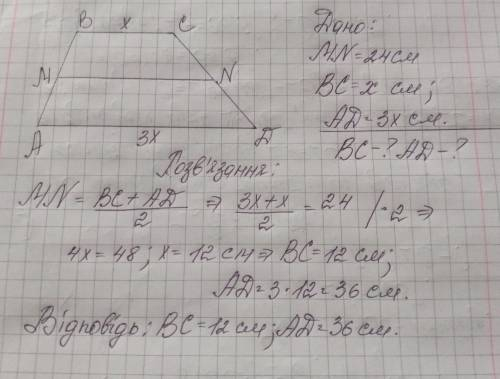 B x C
M N
A 3x D
Дано:
MN = 24 см
BC = x см;
AD = 3x см.
BC - ? AD - ?
Розв'язання:
MN = (BC + AD)/2 ⇒ (3x + x)/2 = 24 /·2 ⇒
4x = 48; x = 12 см ⇒ BC = 12 см;
AD = 3·12 = 36 см.
Відповідь: BC = 12 см; AD = 36 см.